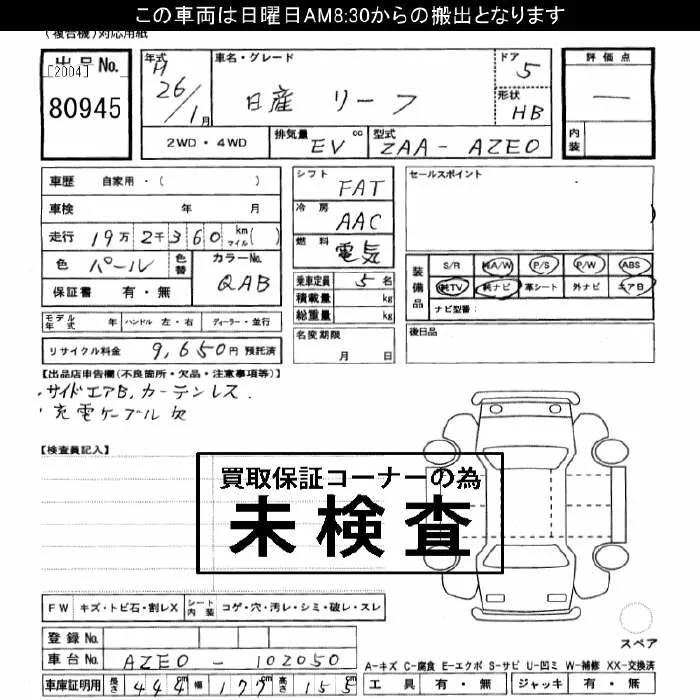 この車両は日曜日AM8:30からの搬出となります
(複合機)対応用紙
出品No.
[2004]
80945
年式 H 26/1月
車名・グレード 日産 リーフ
ドア 5
形状 HB
評価点 —
内装
2WD・4WD
排気量 EV cc
型式 ZAA-AZE0
車歴 自家用・( )
車検 年 月
走行 19万2千360 km マイル( )
色 パール 色替 カラーNo. QAB
保証書 有・無
シフト FAT
冷房 AAC
燃料 電気
乗車定員 5名
積載量 kg
総重量 kg
名変期限 月 日
セールスポイント
装備品 S/R 純A/W P/S P/W ABS
純TV 純ナビ 革シート 外ナビ エアB
ナビ型番:
後日品
モデル年式 年 ハンドル 左・右 ディーラー・並行
リサイクル料金 9,650円 預託済
【出品店申告欄(不良箇所・欠品・注意事項等)】
サイドエアB,カーテンレス.
充電ケーブル欠
【検査員記入】
買取保証コーナーの為
未検査
FW キズ・トビ石・割レX シート内装 コゲ・穴・汚レ・シミ・破レ・スレ
登録No.
車台No. AZE0-102050
車庫証明用 長さ 444cm 幅 177cm 高さ 155cm
スペア
A-キズ C-腐食 E-エクボ S-サビ U-凹ミ W-補修 XX-交換済
工具 有・無 ジャッキ 有・無